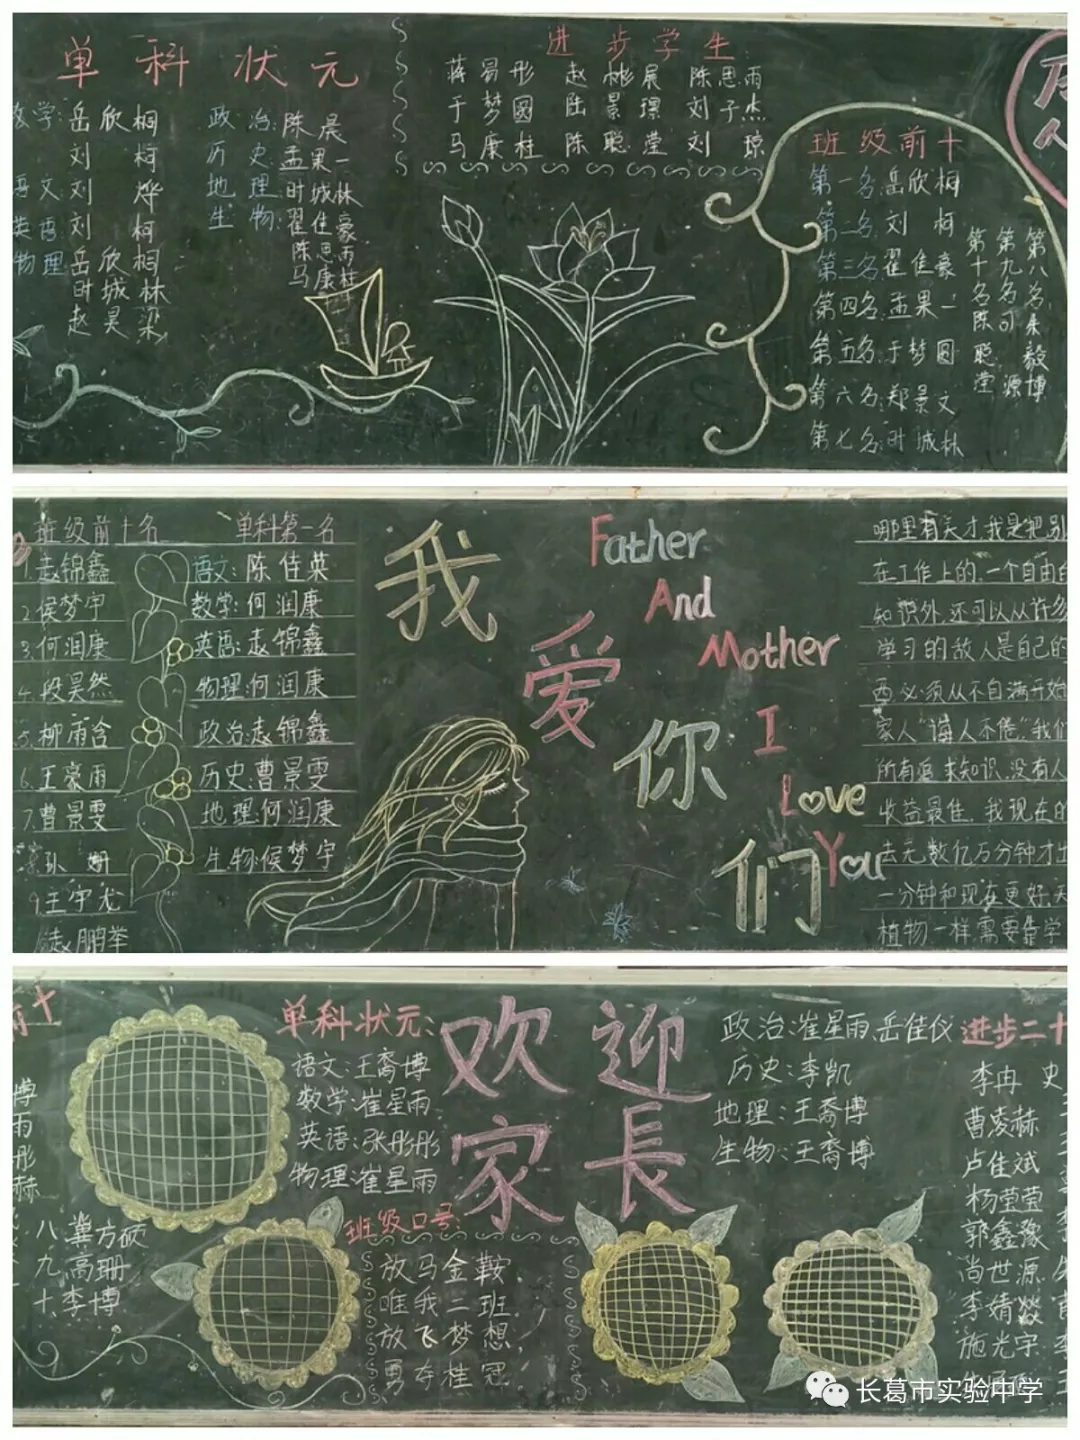 单科状元
数学:岳欣桐
刘柯
语文:刘烨
英语:刘柯
物理:岳欣桐
时城林
赵昊梁
政治:陈晨
历史:孟果一
地理:时城林
生物:翟佳豪
陈思雨
马康桂
进步学生
蒋易彤 赵彬晨 陈思雨
于梦圆 陆景璟 刘子杰
马康桂 陈聪滢 刘琼
班级前十
第一名:岳欣桐
第二名:刘柯
第三名:翟佳豪
第四名:孟果一
第五名:于梦圆
第六名:郑景文
第七名:时城林
第八名:朱毅博
第九名:司源
第十名:陈聪滢
班级前十名
1.赵锦鑫
2.侯梦宇
3.何润康
4.段昊然
5.柳雨含
6.王豪雨
7.曹景雯
8.孙姗
9.王宇龙
赵鹏举
单科第一名
语文:陈佳英
数学:何润康
英语:赵锦鑫
物理:何润康
政治:赵锦鑫
历史:曹景雯
地理:何润康
生物:侯梦宇
我爱你们
Father
And
Mother
I
Love
You
哪里有天才,我是把别
在工作上的.一个自由
知识外,还可以从许多
学习的敌人是自己的
西,必须从不自满开始
家人“诲人不倦”我们
所有要求知识,没有人
收益最佳,我现在的
去无数亿万分钟才出
一分钟和现在更好.天
植物一样需要靠学
前十
博
雨
彤
赫
八 龚方硕
九 高珊
十 李博
单科状元:
语文:王裔博
数学:崔星雨
英语:张彤彤
物理:崔星雨
欢迎
家長
班级口号:
放马金鞍
唯我二班
放飞梦想,
勇夺桂冠
政治:崔星雨,岳佳仪
历史:李凯
地理:王裔博
生物:王裔博
进步二十
李冉 史
曹凌赫
卢佳斌
杨莹莹
郭鑫豫
尚世源
李婧燚
施光宇
长葛市实验中学